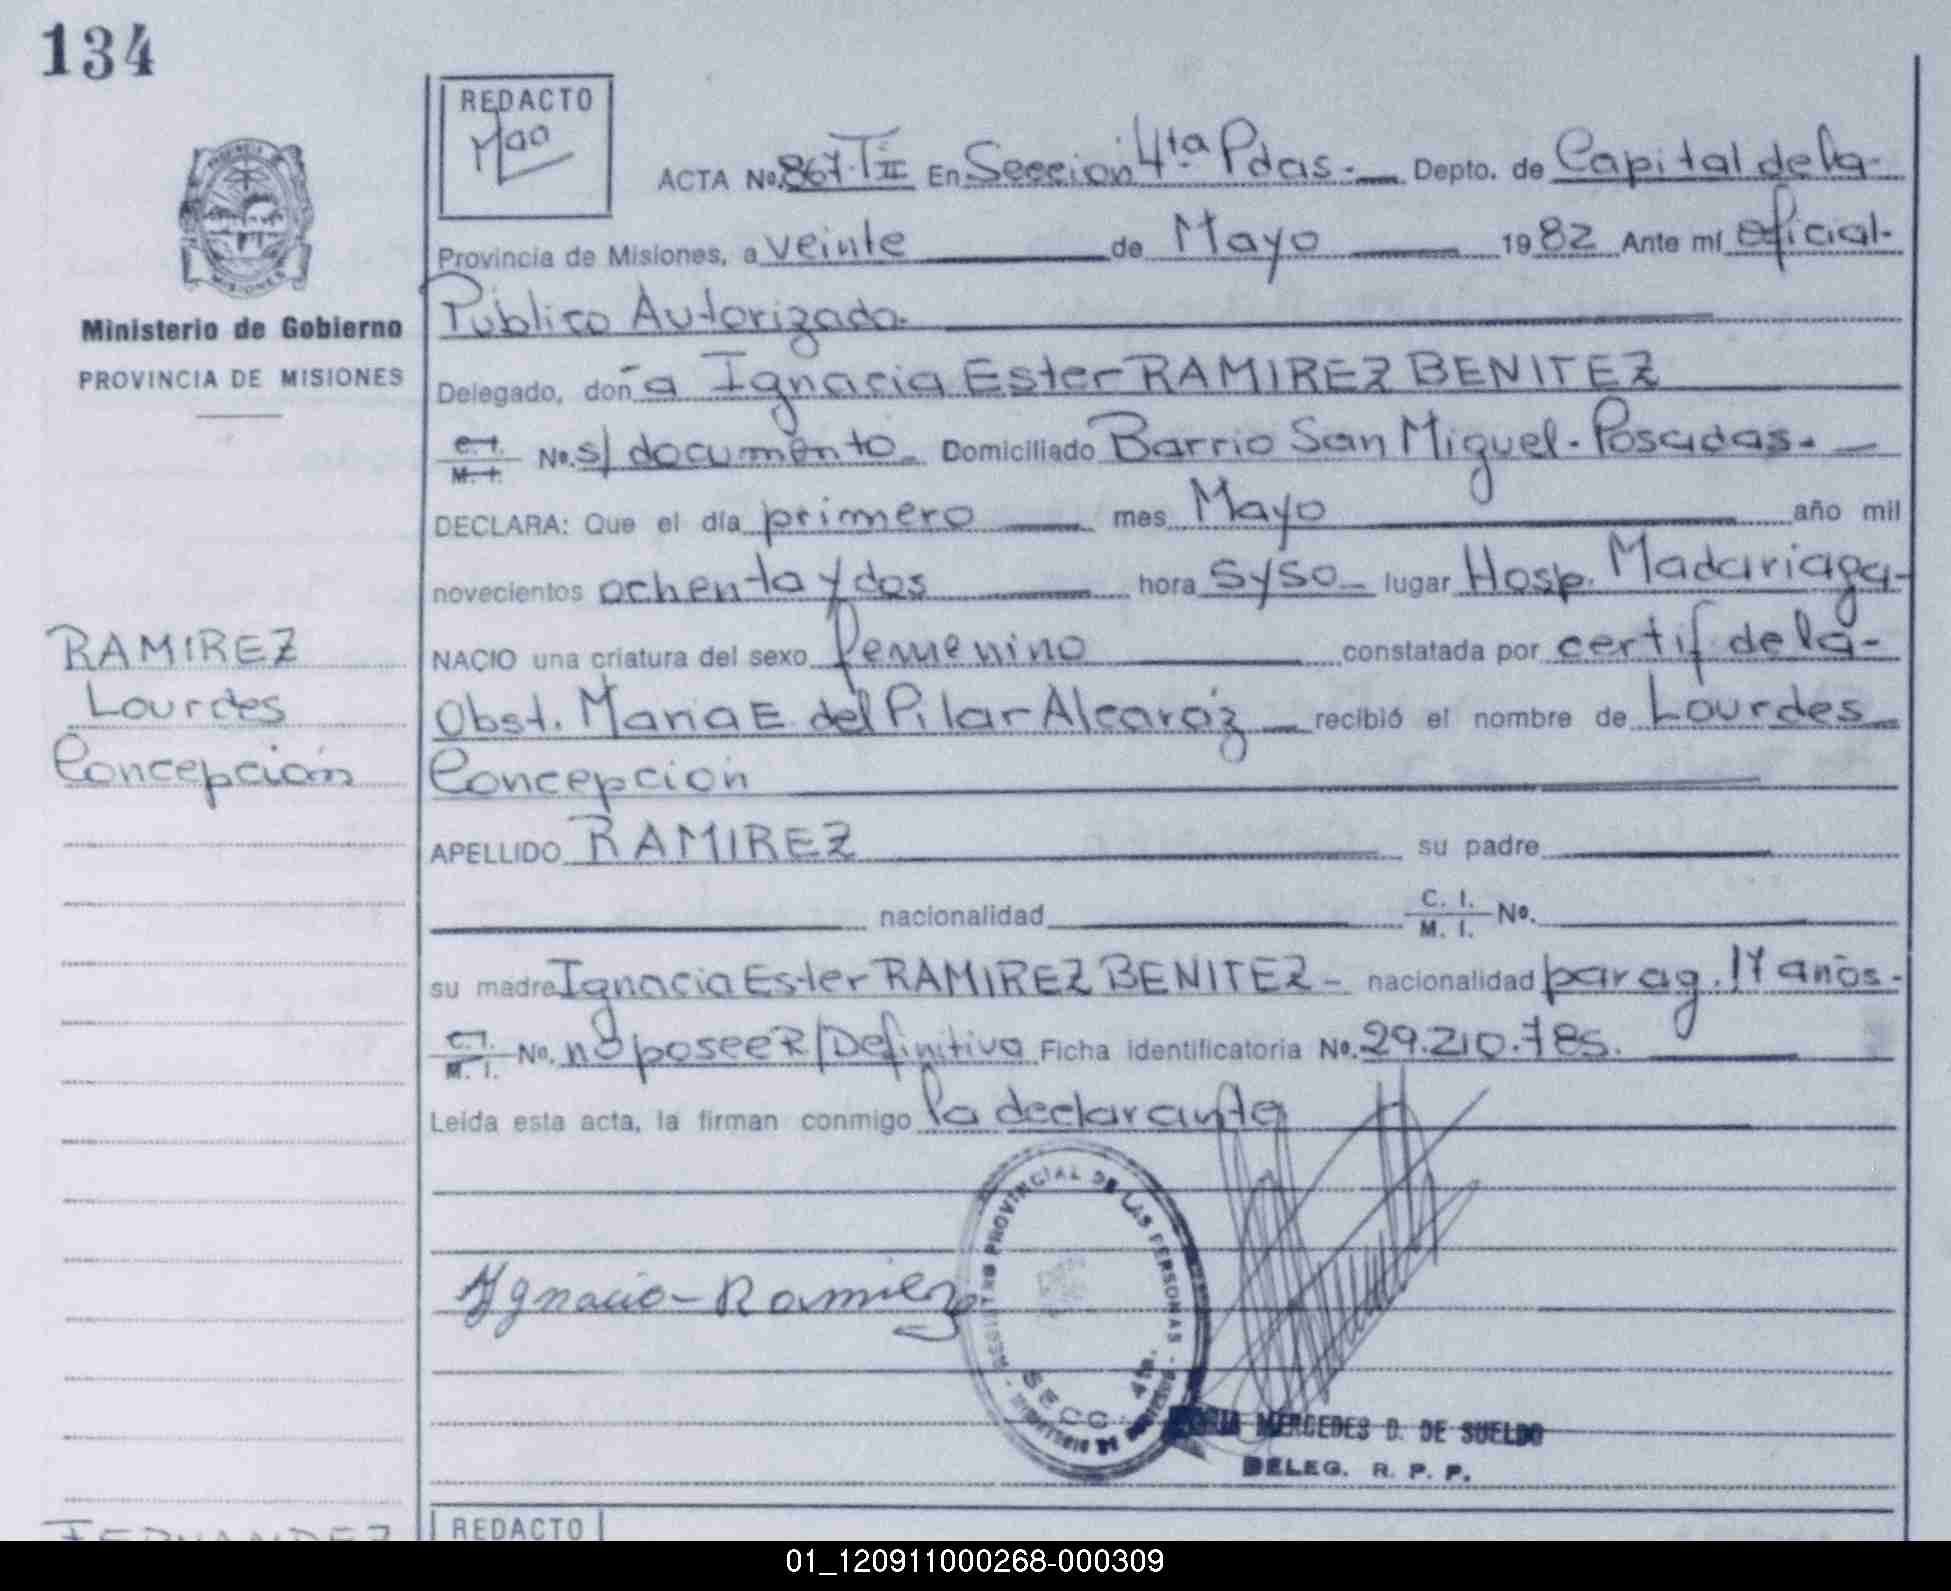 134
REDACTO
Mao
ACTA No. 867. T II En Seccion 4ta Pdas.- Depto. de Capital de la-
Provincia de Misiones, a veinte de Mayo 1982 Ante mí oficial-
Público Autorizado.
Ministerio de Gobierno
PROVINCIA DE MISIONES
Delegado, doña Ignacia Ester RAMIREZ BENITEZ
C. I. / M. I. No. s/ documento. Domiciliado Barrio San Miguel - Posadas. -
DECLARA: Que el día primero mes Mayo año mil
novecientos ochenta y dos hora 5y50 lugar Hosp. Madariaga-
RAMIREZ
Lourdes
Concepción
NACIO una criatura del sexo femenino constatada por certif de la-
Obst. Maria E. del Pilar Alcaráz recibió el nombre de Lourdes
Concepcion
APELLIDO RAMIREZ su padre
nacionalidad C. I. / M. I. No.
su madre Ignacia Ester RAMIREZ BENITEZ - nacionalidad parag. 17 años-
C. I. / M. I. No. no posee R/Definitiva Ficha identificatoria No. 29.210.785.
Leída esta acta, la firman conmigo la declarante
Ygnacia - Ramirez
REGISTRO PROVINCIAL DE LAS PERSONAS
SECC. 4ta.
MERCEDES D. DE SUELDO
DELEG. R. P. P.
FERNANDEZ
REDACTO
01_120911000268-000309